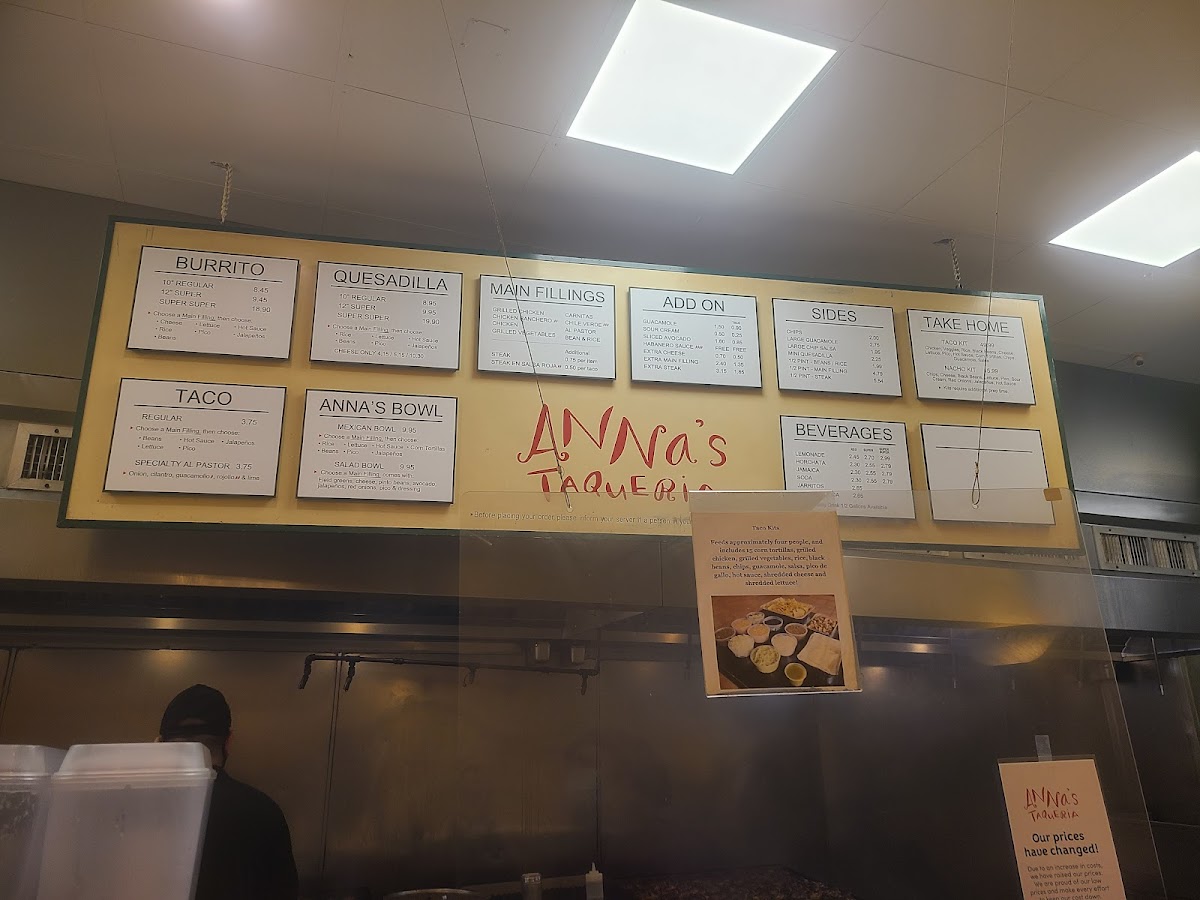 BURRITO
10" REGULAR 8.45
12" SUPER 9.45
SUPER SUPER 18.90
• Choose a Main Filling, then choose:
• Cheese • Lettuce • Hot Sauce
• Rice • Pico • Jalapeños
• Beans
QUESADILLA
10" REGULAR 8.95
12" SUPER 9.95
SUPER SUPER 19.90
• Choose a Main Filling, then choose:
• Rice • Lettuce • Hot Sauce
• Beans • Pico • Jalapeños
MAIN FILLINGS
GRILLED CHICKEN CARNITAS
CHICKEN RANCHERO CHILE VERDE
CHICKEN AL PASTOR
GRILLED VEGETABLES BEAN & RICE
Additional
STEAK 1.75 per item
STEAK EN SALSA ROJA 0.50 per taco
ADD ON
GUACAMOLE
SOUR CREAM
SLICED AVOCADO
HABANERO SAUCE FREE FREE
EXTRA CHEESE
EXTRA MAIN FILLING
EXTRA STEAK
SIDES
CHIPS
LARGE GUACAMOLE
LARGE CHIP SALSA
MINI QUESADILLA
1/2 PINT - BEANS / RICE
1/2 PINT - MAIN FILLING
1/2 PINT - STEAK
TAKE HOME
TACO KIT
NACHO KIT
TACO
REGULAR 3.75
• Choose a Main Filling, then choose:
• Beans • Hot Sauce • Jalapeños
• Lettuce • Pico
SPECIALTY AL PASTOR 3.75
• Onion, cilantro, guacamole, rojo & lime
ANNA'S BOWL
MEXICAN BOWL 9.95
• Choose a Main Filling, then choose:
• Rice • Lettuce • Hot Sauce • Corn Tortillas
• Beans • Pico • Jalapeños
SALAD BOWL 9.95
• Choose a Main Filling, comes with
Field greens, cheese, pinto beans, avocado
jalapeños, red onions, pico & dressing
ANNa's
TAQUERIA
• Before placing your order please inform your server if a person in
BEVERAGES
LEMONADE
HORCHATA
JAMAICA
SODA
JARRITOS
Taco Kits
Feeds approximately four people, and
includes 15 corn tortillas, grilled
chicken, grilled vegetables, rice, black
beans, chips, guacamole, salsa, pico de
gallo, hot sauce, shredded cheese and
shredded lettuce!
ANNa's
TAQUERIA
Our prices
have changed!
Due to an increase in costs,
we have raised our prices.
We are proud of our low
prices and make every effort
to keep our cost down.